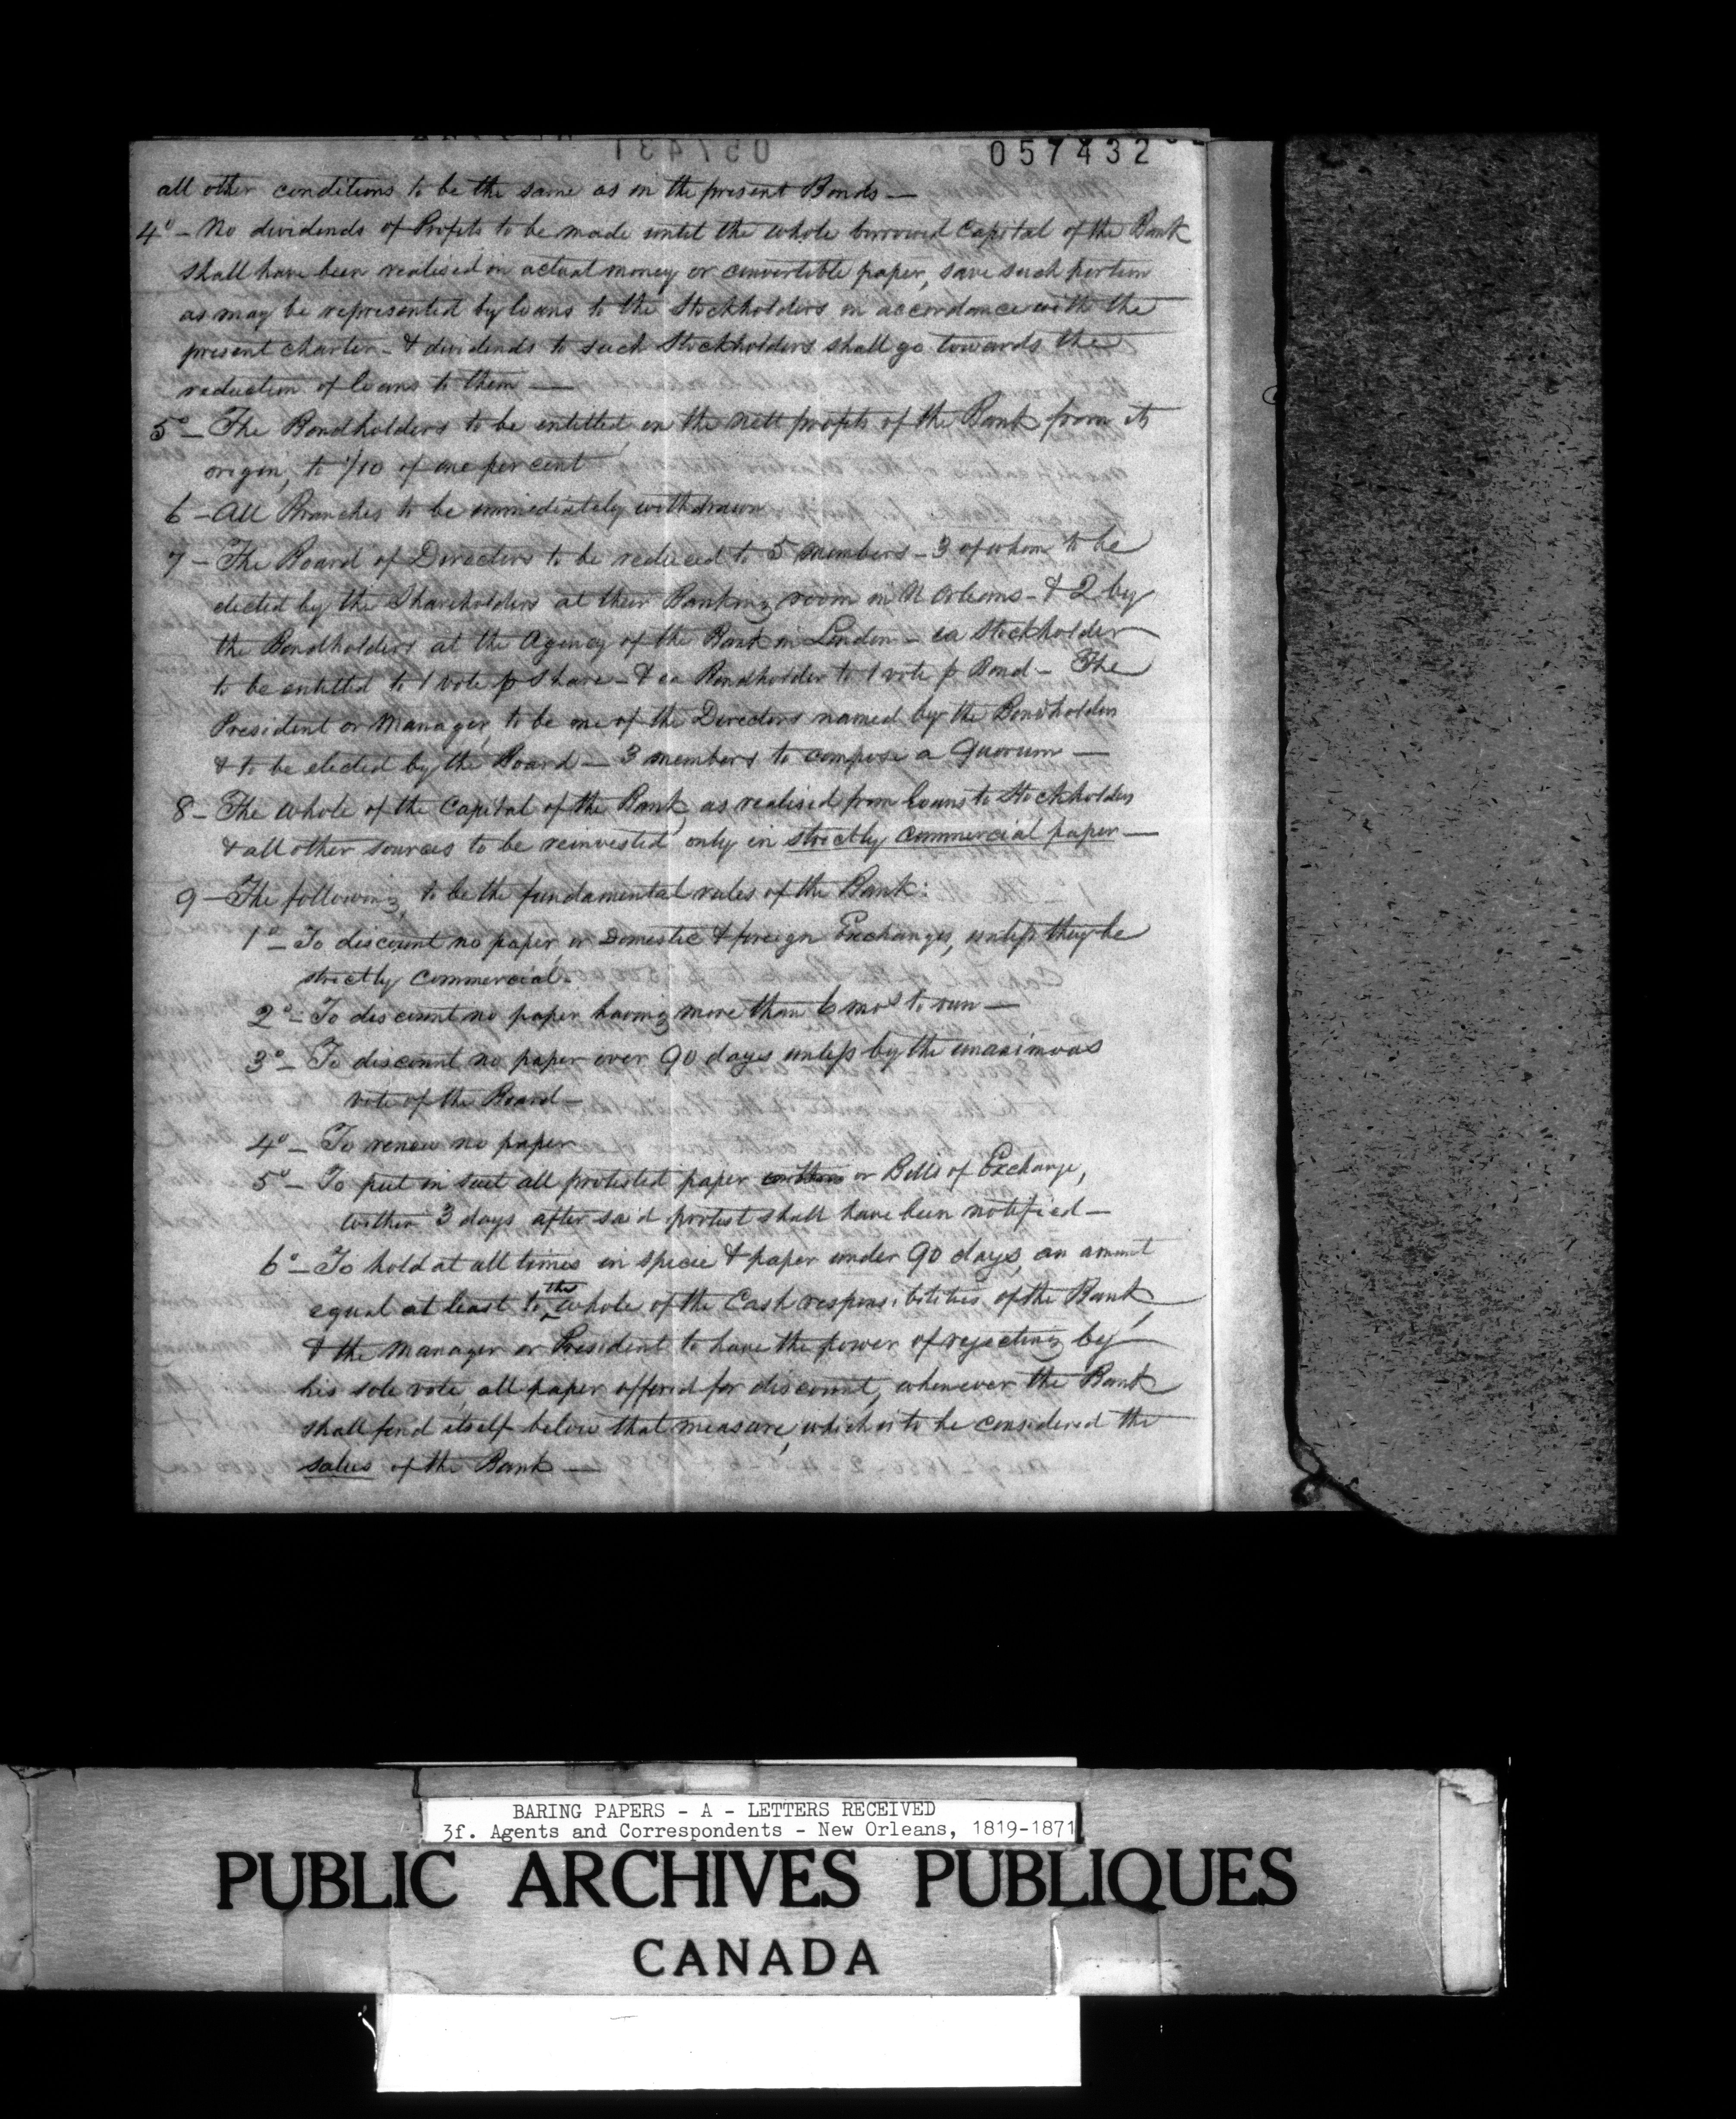 057432
all other conditions to be the same as in the present Bonds —
4° — No dividends of Profits to be made until the whole borrowed Capital of the Bank
shall have been realised in actual money or convertible paper, save such portion
as may be represented by loans to the Stockholders in accordance with the
present charter — & dividends to such Stockholders shall go towards the
reduction of loans to them —
5° — The Bondholders to be entitled, on the nett profits of the Bank from its
origin, to 1/10 of one per cent
6 — All Branches to be immediately withdrawn
7 — The Board of Directors to be reduced to 5 members — 3 of whom to be
elected by the Shareholders at their Banking room in N Orleans — & 2 by
the Bondholders at the Agency of the Bank in London — ea Stockholder
to be entitled to 1 vote p Share — & ea Bondholder to 1 vote p Bond — The
President or Manager, to be one of the Directors named by the Bondholders
& to be elected by the Board — 3 members to compose a Quorum —
8 — The whole of the Capital of the Bank, as realised from loans to Stockholders
& all other sources to be reinvested only in strictly commercial paper —
9 — The following, to be the fundamental rules of the Bank:
1° — To discount no paper, or Domestic & foreign Exchanges, unless they be
strictly commercial.
2° — To discount no paper having more than 6 mos to run —
3° — To discount no paper over 90 days unless by the unanimous
vote of the Board —
4° — To renew no paper
5° — To put in suit all protested paper or Bills of Exchange,
within 3 days after said protest shall have been notified —
6° — To hold at all times in specie & paper under 90 days, an amount
equal at least to the whole of the Cash responsibilities of the Bank,
& the Manager or President to have the power of rejecting by
his sole vote, all paper offered for discount, whenever the Bank
shall find itself below that measure, which is to be considered the
salus of the Bank —
BARING PAPERS - A - LETTERS RECEIVED
3f. Agents and Correspondents - New Orleans, 1819-1871
PUBLIC ARCHIVES PUBLIQUES
CANADA